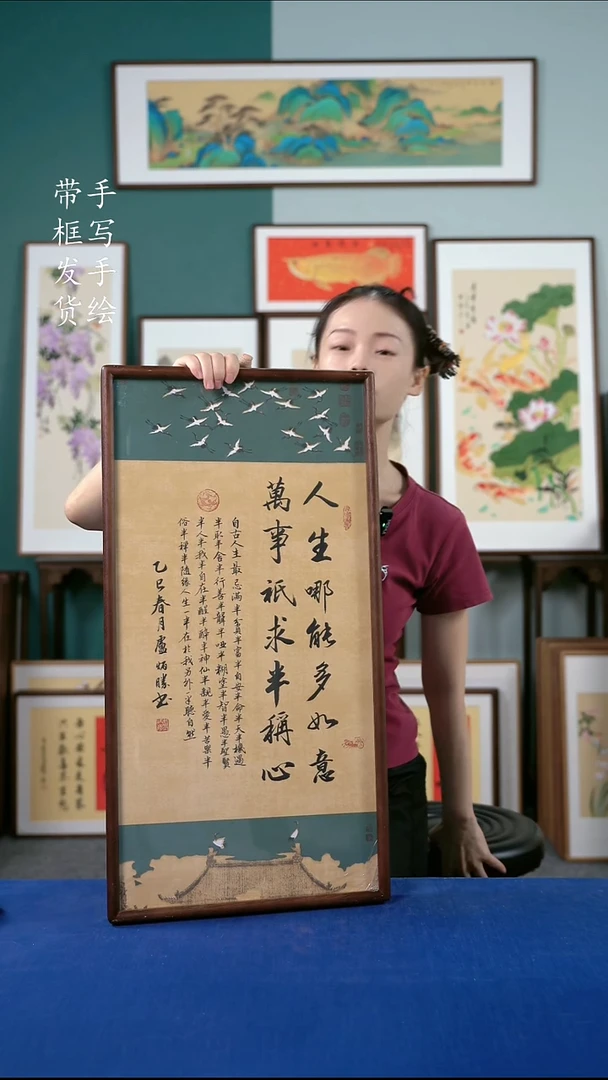 手写手绘
带框发货
人生哪能多如意
萬事祇求半稱心
自古人生最忌滿半貧半富半自安半命半天半機遇
半取半舍半行善半聾半啞半糊塗半智半愚半聖賢
半人半我半自在半醒半醉半神仙半親半愛半苦樂半
俗半禪半隨緣人生一半在於我另外一半聽自然
乙巳春月盧炳勝书